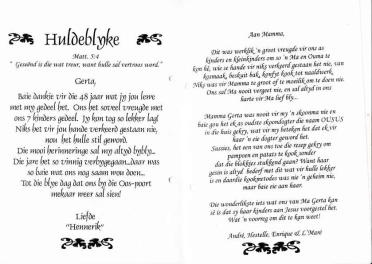 Huldeblyke
Matt. 5:4
" Geseënd is die wat treur, want hulle sal vertroos word."
Gerta,
Baie dankie vir die 48 jaar wat jy jou lewe
met my gedeel het. Ons het soveel vreugde met
ons 7 kinders gedeel. Jy kon tog so lekker lag!
Niks het vir jou hande verkeerd gestaan nie,
non het hulle stil geword.
Die mooi herinneringe sal my altyd bybly...
Die jare het so vinnig verbygegaan...daar was
so baie wat ons nog saam wou doen...
Tot die blye dag dat ons by die Oos-poort
mekaar weer sal sien!
Liefde
"Hennerik"
Aan Mamma,
Dit was werklik 'n groot vreugde vir ons as
kinders en kleinkinders om so 'n Ma en Ouma te
kon hê, wie se hande vir niks verkeerd gestaan het nie, van
kosmaak, beskuit bak, konfyt kook tot naaldwerk,
Niks was vir Mamma te groot of te moeilik om te doen nie.
Ons sal Ma nooit vergeet nie, en sal altyd in ons
harte vir Ma lief bly...
Mamma Gerta was nooit vir my 'n skoonma nie en
baie gou het ek as oudste skoondogter die naam OUSUS
in die huis gekry, wat vir my beteken het dat ek vir
haar 'n eie dogter geword het.
Sussies, het een van ons toe die resep gekry om
pampoen en patats te kook sonder
dat die blokkies stukkend gaan? Want haar
gesin is altyd bederf met dit wat vir hulle lekker
is en daardie kookmetodes was nie 'n geheim nie,
maar baie eie aan haar.
Die wonderlikste iets wat ons van Ma Gerta kan
sê is dat sy haar kinders aan Jesus voorgestel het.
Wat 'n voorreg om dit te kon weet!
André, Hestelle, Enrique & L'Maré